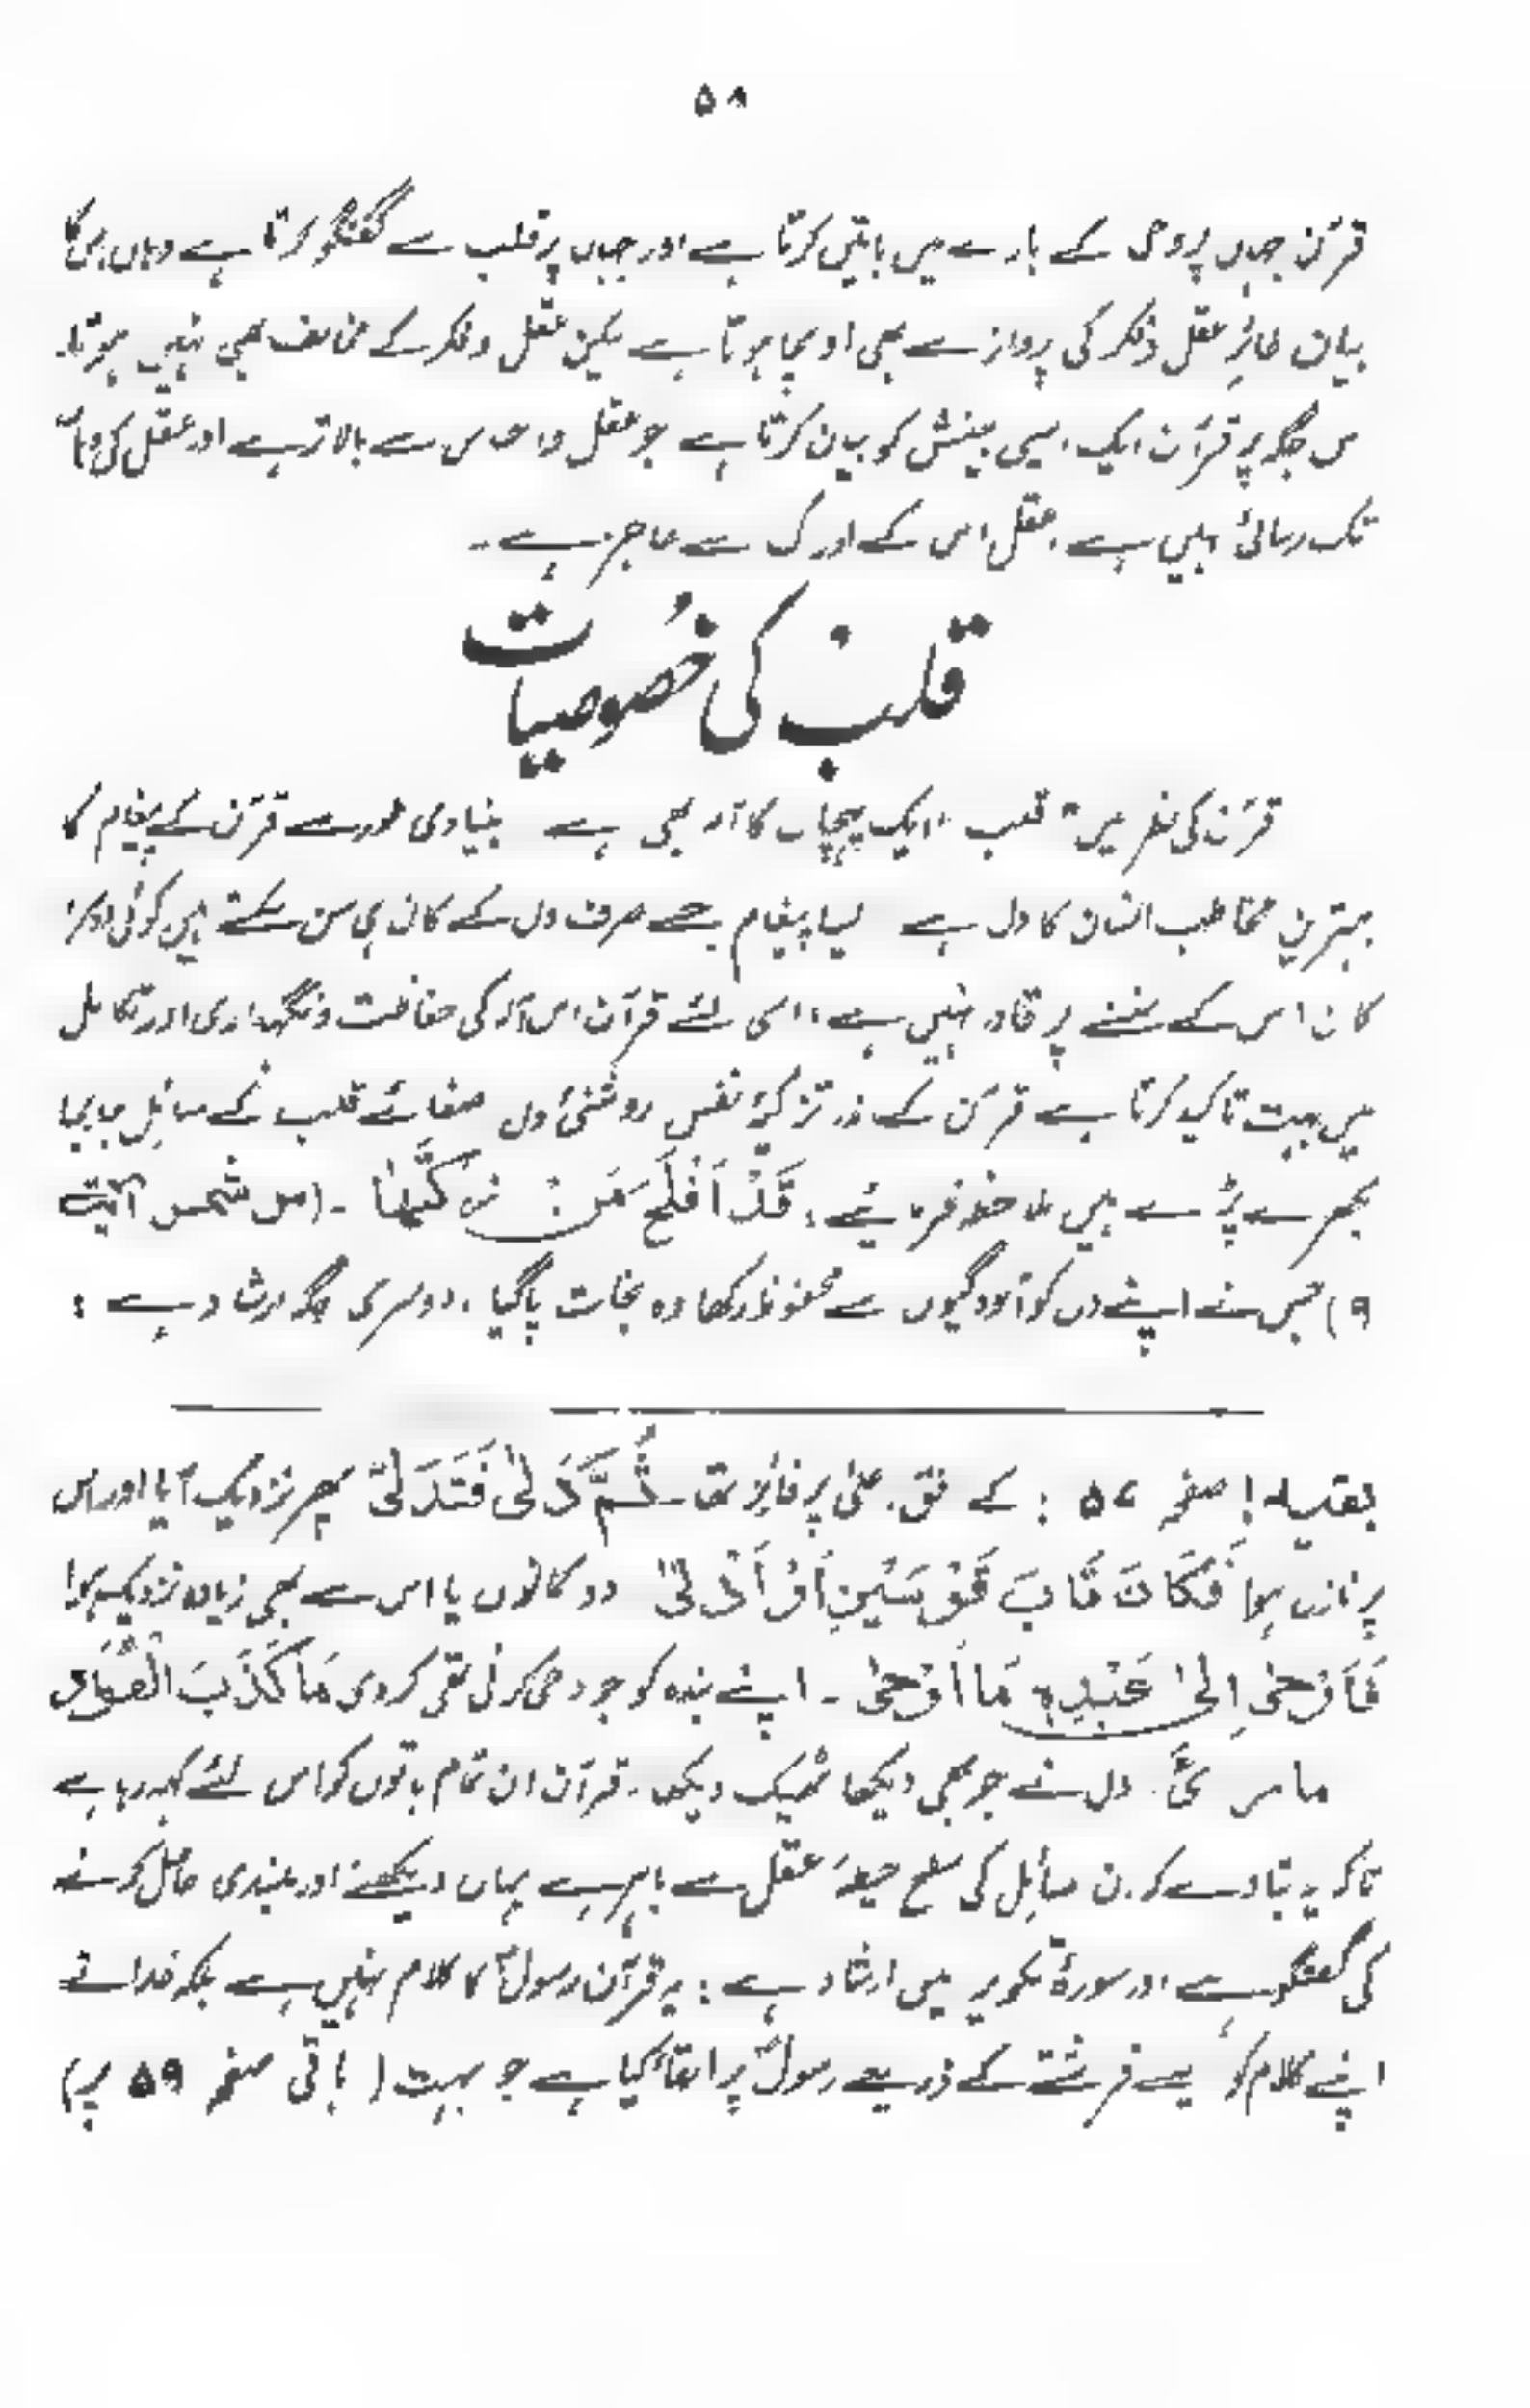 ۵۸
قرآن جہاں پر وحی کے بارے میں باتیں کرتا ہے اور جہاں پر قلب سے گفتگو کرتا ہے وہاں اس کا
بیان طائرِ عقل و فکر کی پرواز سے بھی اونچا ہوتا ہے لیکن عقل و فکر کے مخالف بھی نہیں ہوتا۔
اس جگہ پر قرآن ایک ایسی بینش کو بیان کرتا ہے جو عقل و احساس سے بالاتر ہے اور عقل کی وہاں
تک رسائی نہیں ہے ، عقل اس کے ادرک سے عاجز ہے ۔
قلب کی خُصوصیات
قرآن کی نظر میں " قلب " ایک پہچان کا آلہ بھی ہے بنیادی طور سے قرآن کے پیغام کا
بہترین مخاطب انسان کا دل ہے ایسا پیغام جسے صرف دل کے کان ہی سن سکتے ہیں کوئی دوسرا
کان اس کے سننے پر قادر نہیں ہے ، اسی لئے قرآن اس آلہ کی حفاظت و نگہداری اور تکامل
میں بہت تاکید کرتا ہے قرآن کے اندر تزکیۂ نفس روشنیٔ دل صفائے قلب کے مسائل جابجا
بھرے پڑے ہیں ملاحظہ فرمائیے : قَدْ اَفْلَحَ مَنْ زَكّٰىهَا ۔ (شمس آیت
۹) جس نے اپنے دل کو آلودگیوں سے محفوظ رکھا وہ نجات پا گیا ، دوسری جگہ ارشاد ہے :
بقیہ ! صفحہ ۵۷ : کے فق پر فائز تھا ۔ ثُمَّ دَنٰى فَتَدَلّٰى پھر نزدیک آیا اور اس
پر نازل ہوا فَكَانَ قَابَ قَوْسَيْنِ اَوْ اَدْنٰى دو کمانوں یا اس سے بھی زیادہ نزدیک ہوا
فَاَوْحٰى اِلٰى عَبْدِهٖ مَا اَوْحٰى ۔ اپنے بندہ کو جو وحی کرنی تھی کر دی مَا كَذَبَ الْفُؤَادُ
مارَیٰ ۔ دل نے جو بھی دیکھا ٹھیک دیکھا ۔ قرآن ان تمام باتوں کو اس لئے کہہ رہا ہے
تاکہ یہ بتا دے کہ ان مسائل کی سطح حیطۂ عقل سے باہر ہے یہاں دیکھنے اور بلندی حاصل کرنے
کی گفتگو ہے اور سورۂ تکویر میں ارشاد ہے : یہ قرآن رسول کا کلام نہیں ہے بلکہ خدا نے
اپنے کلام کو ایسے فرشتے کے ذریعے رسول پر القاء کیا ہے جو بہت ( باقی صفحہ ۵۹ پر)